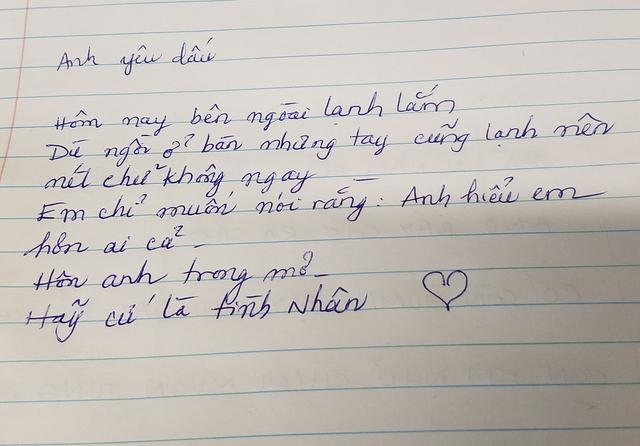 Anh yêu dấu
Hôm nay bên ngoài lạnh lắm
Dù ngồi ở bàn nhưng tay cũng lạnh nên
nét chữ không ngay
Em chỉ muốn nói rằng: Anh hiểu em
hơn ai cả -
Hôn anh trong mơ -
Hãy cứ là tình Nhân